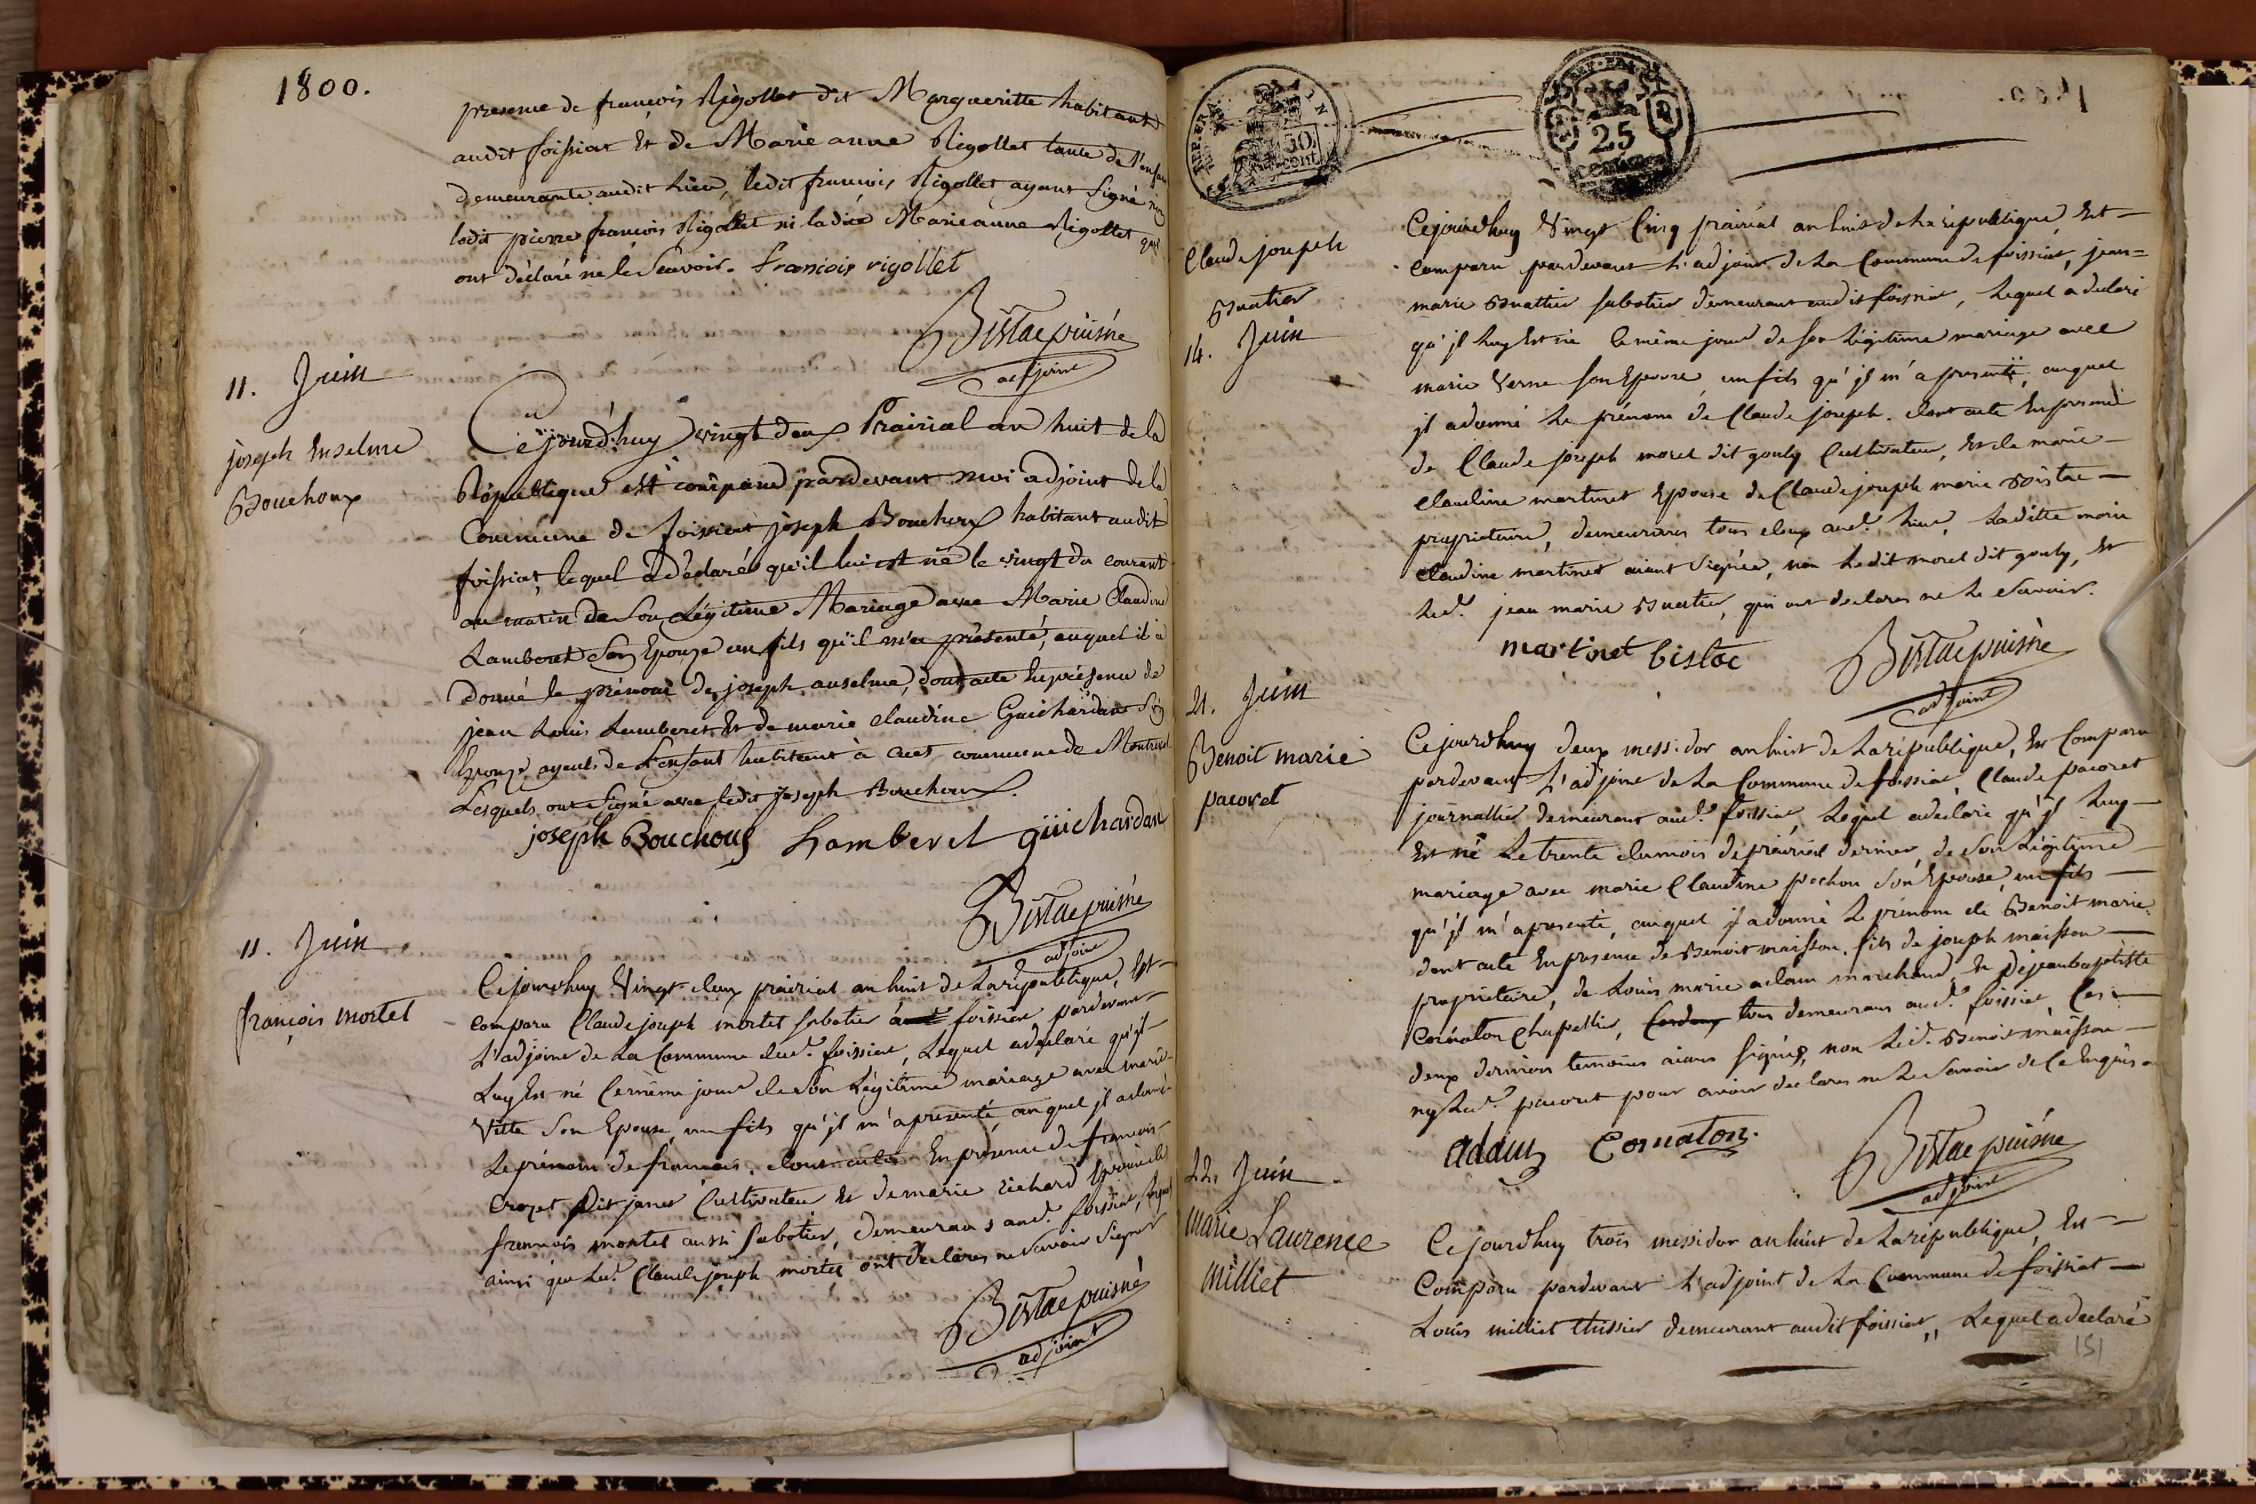 1800.
presence de françois Rigollet dit Margueritte habitant
audit foissiat Et de Marie anne Rigollet tante de l'enfan
demeurante audit Lieu, ledit francois Rigollet ayant Signé non
ledit pierre francois Rigollet ni ladite Marie anne Rigollet qui
ont déclaré ne le Scavoir. francois rigollet
Bistac puiné
adjoint
11. Juin
joseph Enselme
Bouchoux
Cejourd'huy vingt deux Prairial an huit de la
République est comparu pardevant moi adjoint de la
Commune de foissiat joseph Bouchoux habitant audit
foissiat, lequel a déclaré qu'il lui est né le vingt du courant
au matin de Son Légitime Mariage avec Marie Claudine
Lamberet Son Epouze un fils qu'il m'a présenté, auquel il a
donné le prénom de joseph anselme, dont acte En présence de
jean Louis Lamberet Et de marie claudine Guichardan Son
Epouze ayeuls de L'enfant habitant à cuet commune de Montrevel
Lesquels ont Signé avec ledit joseph Bouchoux.
joseph Bouchoux Lamberet guichardan
Bistac puiné
adjoint
11. Juin
françois mortet
Cejourdhuy Vingt deux prairial an huit de La république, Est
comparu Claude joseph mortet sabotier à foissiat pardevant
L'adjoint de La Commune dud. foissiat, Lequel a declaré qu'jl
Luy Est né Ce même jour de son Légitime mariage avec marie
Vitte Son Epouse, un fils qu'jl m'a presenté, auquel jl a donné
Le prénom de francois. dont acte En presence de francois
Crozet dit janet Cultivateur Et de marie richard Epouse de
francois mortet aussi Sabotier, demeurans aud. foissiat, lesquels
ainsi que Led. Claude joseph mortet ont declarés ne savoir signer
Bistac puiné
adjoint
Claude joseph
Buatier
14. Juin
Cejourdhuy Vingt Cinq prairial an huit de La république, Est
comparu pardevant L'adjoint de La Commune de foissiat, jean=
marie Buattier sabotier demeurant audit foissiat, Lequel a declaré
qu'jl Luy Est né Ce même jour de son Légitime mariage avec
marie Verne son Epouse un fils qu'jl m'a presenté, auquel
jl a donné Le prénom de Claude joseph. dont acte En presence
de Claude joseph morel dit gouly Cultivateur, Et de marie
claudine martinet Epouse de Claude joseph marie Bistac
propriétaire, demeurans tous deux aud. Lieu, Laditte marie
claudine martinet aiant Signée, non Ledit morel dit gouly, Et
Led. jean marie Buatier, qui ont declarés ne Le savoir.
martinet bistac
Bistac puiné
adjoint
21. Juin
Benoit marie
pacoret
Cejourdhuy deux messidor an huit de La république, Est Comparu
pardevant L'adjoint de La Commune de foissiat, Claude pacoret
journallier demeurant aud. foissiat, Lequel a declaré qu'jl Luy
Est né Le trente du mois de prairial dernier, de son Légitime
mariage avec marie Claudine pochon son Epouse, un fils
qu'jl m'a presenté, auquel jl a donné Le prénom de Benoit marie.
dont acte En presence de Benoit maisson, fils de joseph maisson
propriétaire, de Louis marie adam marchand Et de jean baptiste
Cornaton Chapellier, tous demeurans aud. foissiat, Ces
deux derniers temoins aians signés, non Led. Benoit maisson
ny Led. pacoret pour avoir declarés ne Le savoir de Ce Enquis
adam Cornaton.
Bistac puiné
adjoint
22. Juin
Marie Laurence
Milliet
Cejourdhuy trois messidor an huit de La république, Est
Comparu pardevant L'adjoint de La Commune de foissiat
Louis milliet thissier demeurant audit foissiat, Lequel a declaré
151
30
cent
25